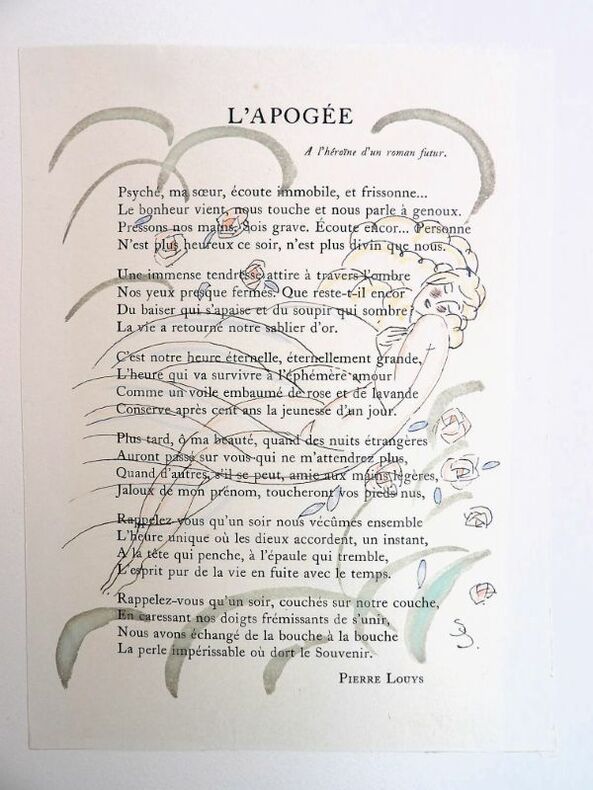 L'APOGÉE
A l'héroïne d'un roman futur.
Psyché, ma sœur, écoute immobile, et frissonne...
Le bonheur vient, nous touche et nous parle à genoux.
Pressons nos mains. Sois grave. Écoute encor... Personne
N'est plus heureux ce soir, n'est plus divin que nous.
Une immense tendresse attire à travers l'ombre
Nos yeux presque fermés. Que reste-t-il encor
Du baiser qui s'apaise et du soupir qui sombre?
La vie a retourné notre sablier d'or.
C'est notre heure éternelle, éternellement grande,
L'heure qui va survivre à l'éphémère amour
Comme un voile embaumé de rose et de lavande
Conserve après cent ans la jeunesse d'un jour.
Plus tard, ô ma beauté, quand des nuits étrangères
Auront passé sur vous qui ne m'attendrez plus,
Quand d'autres, s'il se peut, amie aux mains légères,
Jaloux de mon prénom, toucheront vos pieds nus,
Rappelez-vous qu'un soir nous vécûmes ensemble
L'heure unique où les dieux accordent, un instant,
A la tête qui penche, à l'épaule qui tremble,
L'esprit pur de la vie en fuite avec le temps.
Rappelez-vous qu'un soir, couchés sur notre couche,
En caressant nos doigts frémissants de s'unir,
Nous avons échangé de la bouche à la bouche
La perle impérissable où dort le Souvenir.
PIERRE LOUYS